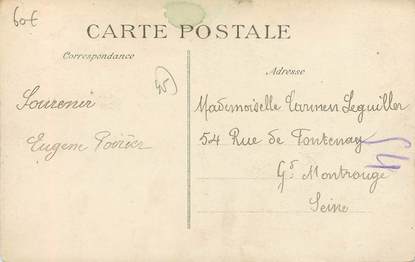 60€
CARTE POSTALE
Correspondance
Adresse
45
Souvenir
Eugene Poirier
Mademoiselle Carmen Leguiller
54 Rue de Fontenay
Gd Montrouge
Seine